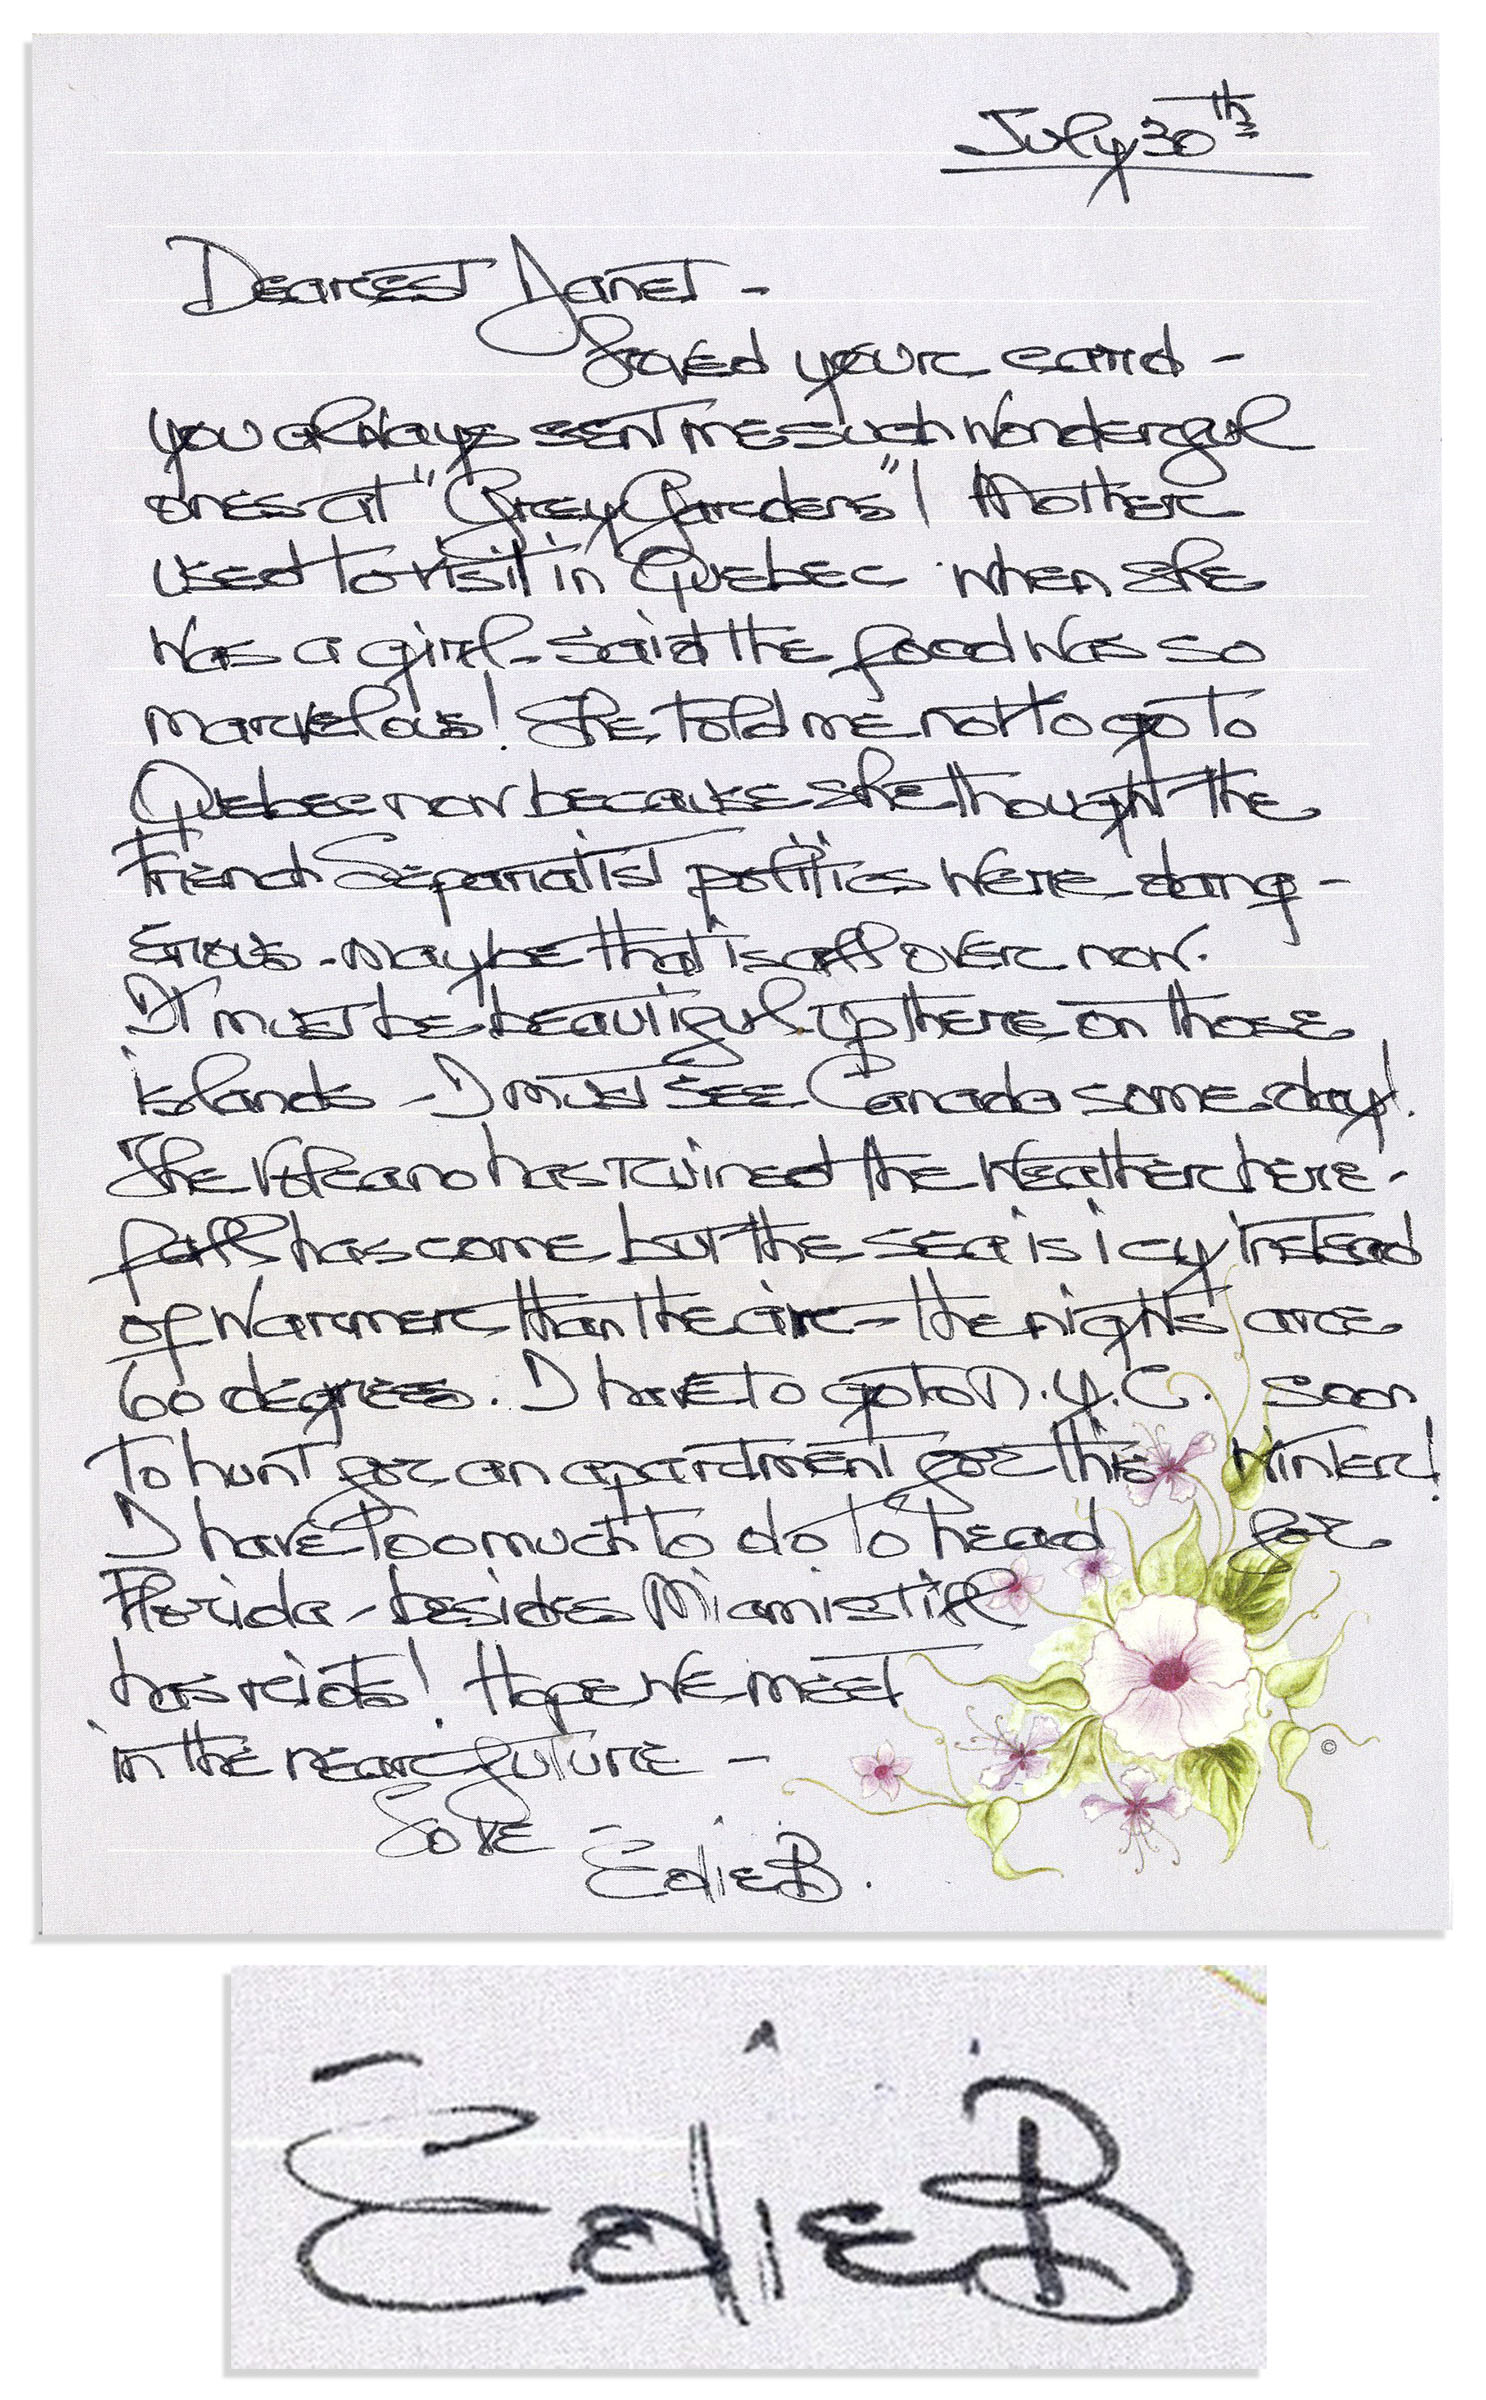 July 30th
Dearest Janet -
Loved your card -
you always sent me such wonderful
ones at "Grey Gardens"! Mother
used to visit in Quebec when she
was a girl - said the food was so
marvelous! She told me not to go to
Quebec now because she thought the
French Separatist politics were dang-
erous - maybe that is all over now.
It must be beautiful up there on those
islands - I must see Canada some day!
The Volcano has ruined the weather here -
fall has come but the sea is icy instead
of warmer than the air - the nights are
60 degrees. I have to go to N.Y.C. soon
to hunt for an apartment for this winter!
I have too much to do to head for
Florida - besides Miami still
has riots! Hope we meet
in the near future -
Love
Edie B.
©
Edie B